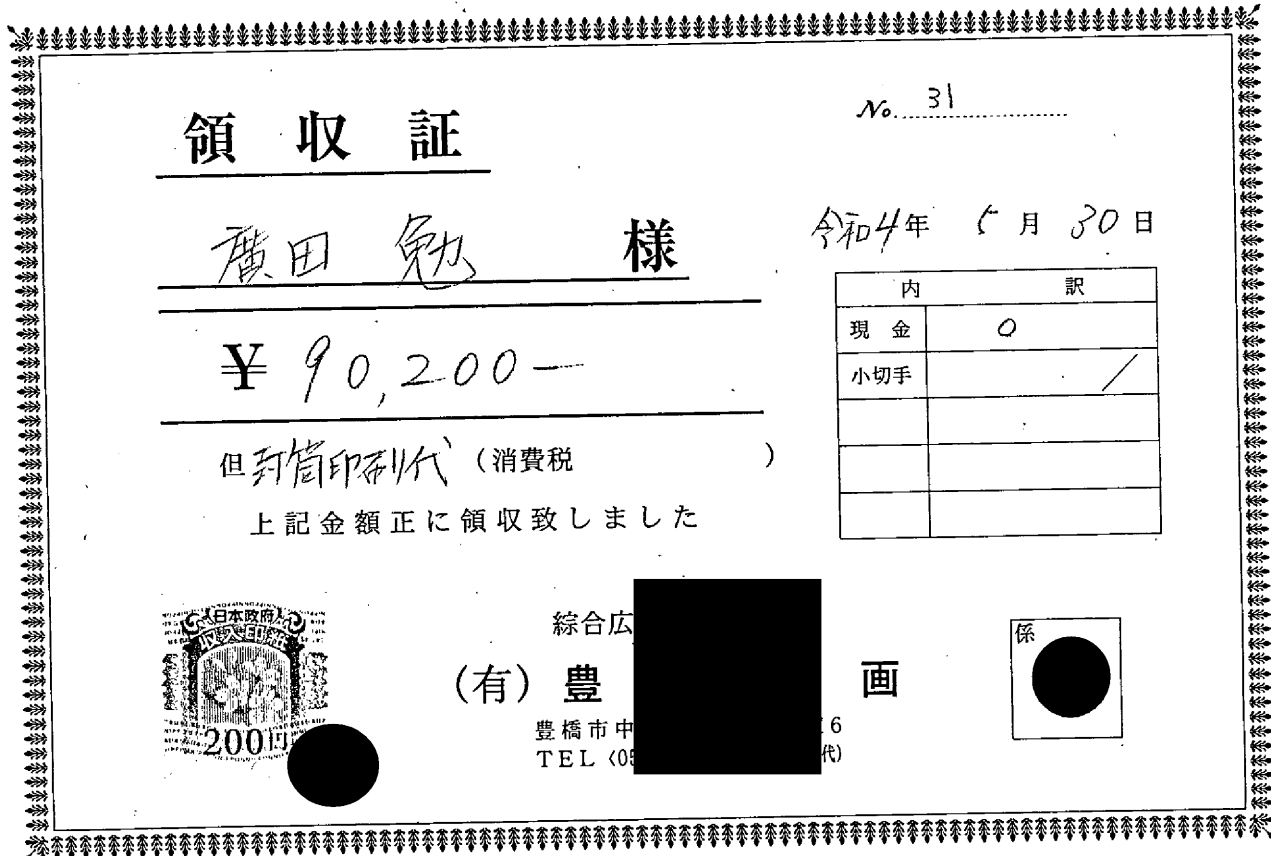 領収証
No. 31
廣田 勉 様
令和4年 5月 30日
¥90,200-
内訳
現金 0
小切手 /
但 封筒印刷代 (消費税 )
上記金額正に領収致しました
日本政府
収入印紙
200円
綜合広
(有) 豊 画
豊橋市中 6
TEL (05 代)
係